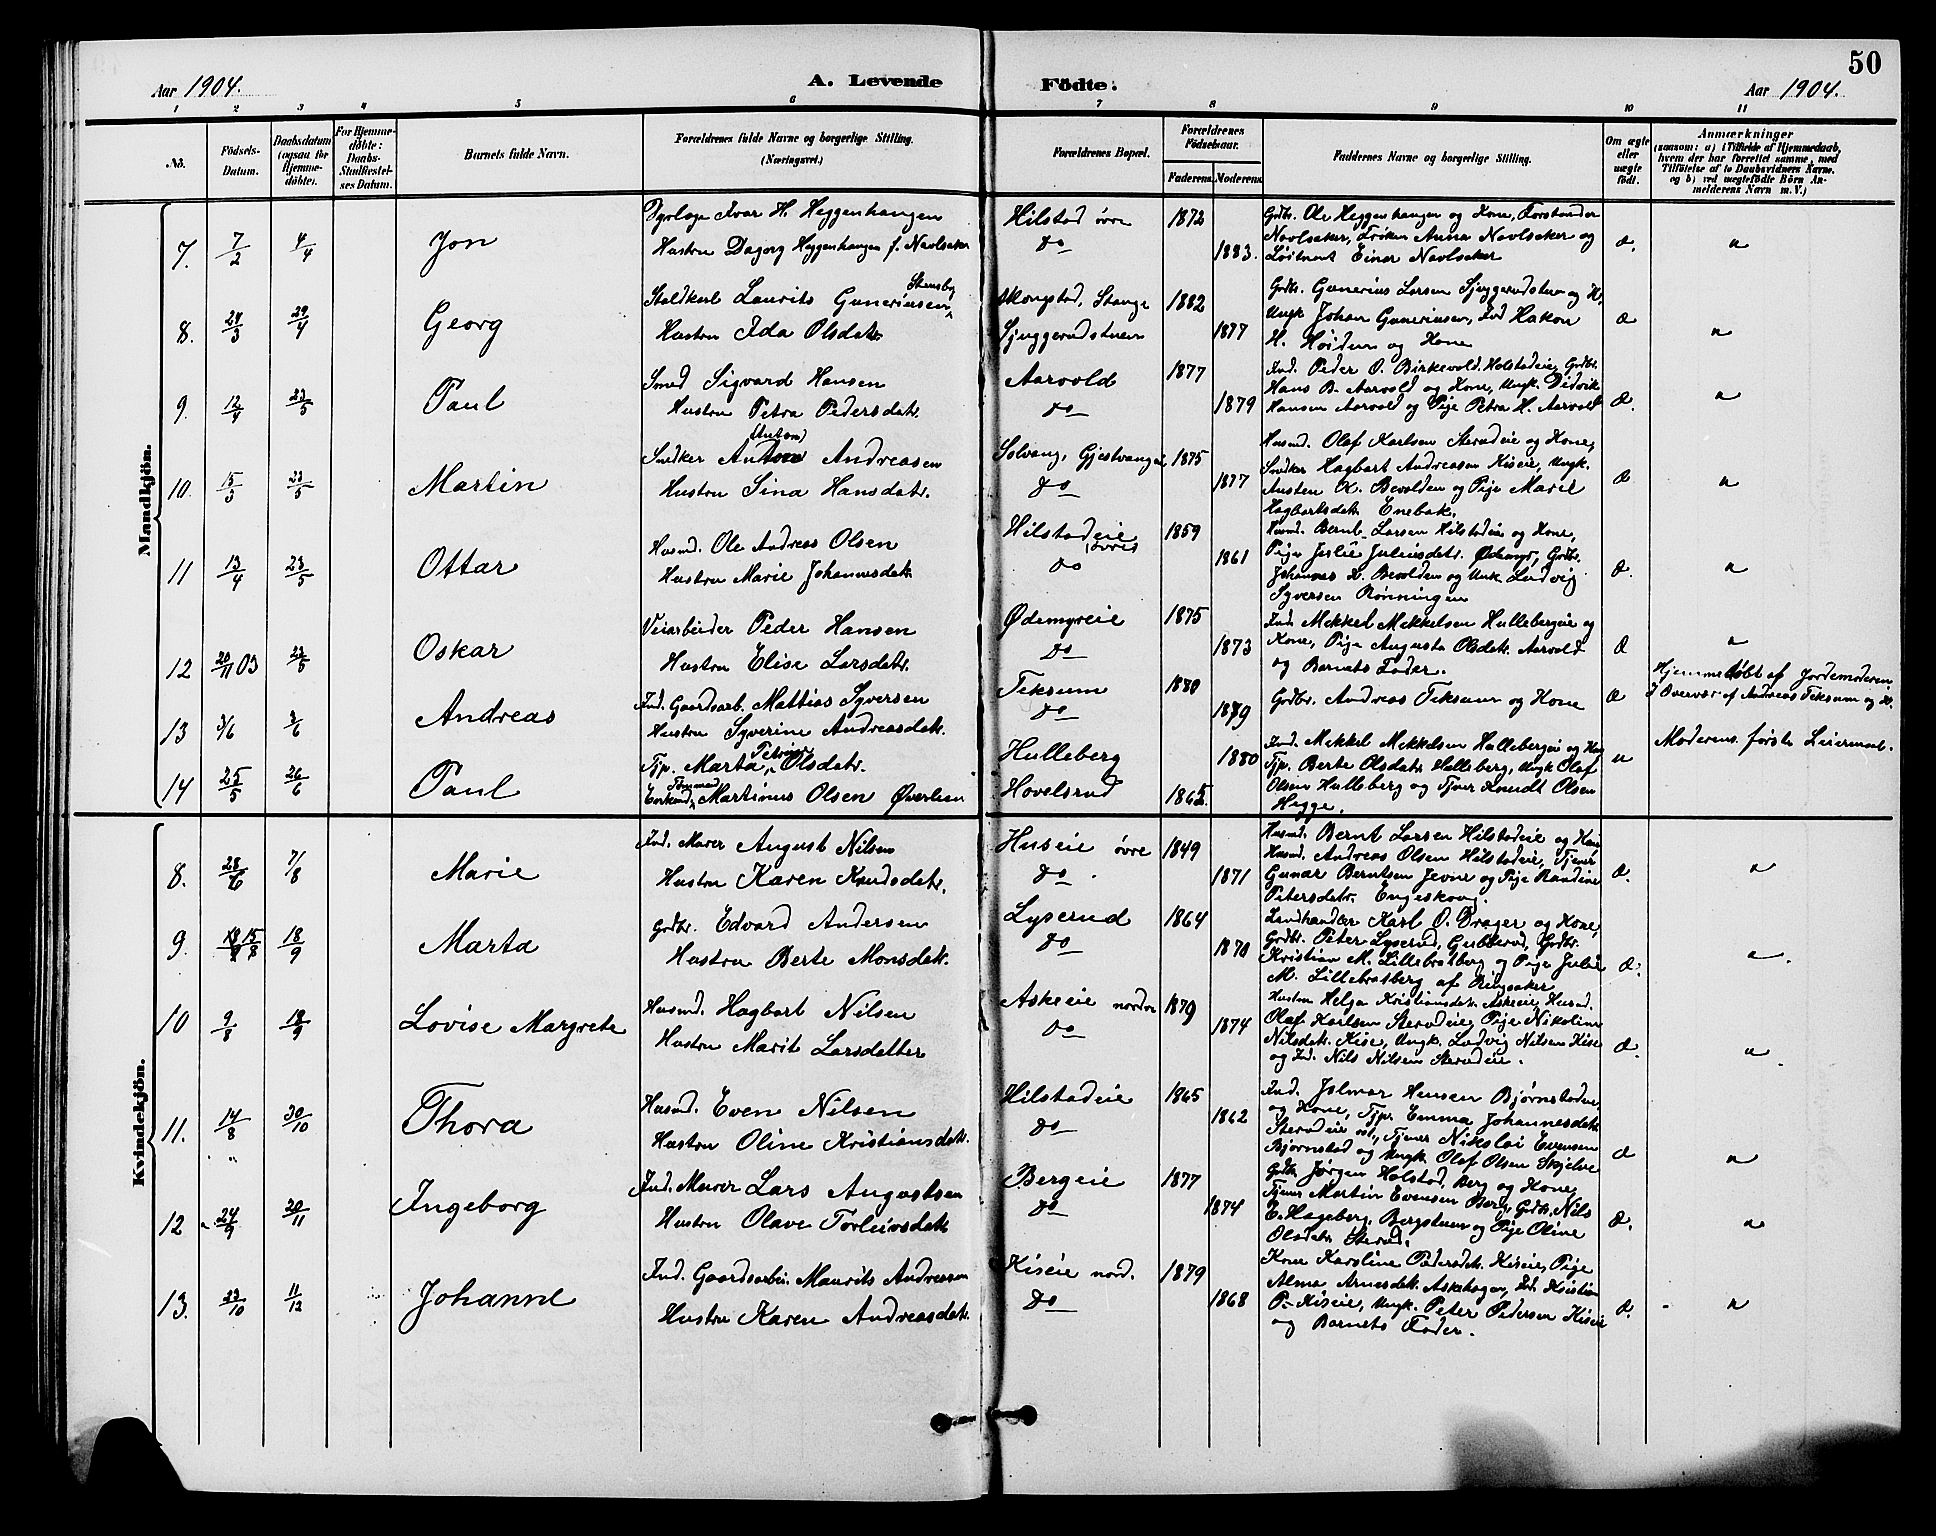 50
Aar 1904.
A. Levende
Födte.
Aar 1904.
1 2 3 4 5 6 7 8 9 10 11
No.
Födsels-Datum.
Daabsdatum (ogsaa for Hjemmedöbte).
For Hjemmedöbte: Daabs-Stadfæstelses Datum.
Barnets fulde Navn.
Forældrenes fulde Navne og borgerlige Stilling.
(Næringsvei.)
Forældrenes Bopæl.
Forældrenes Födselsaar.
Faderens. Moderens.
Faddernes Navne og borgerlige Stilling.
Om ægte eller uægte födt.
Anmærkninger
(saasom: a) i Tilfælde af Hjemmedaab, hvem der har forrettet samme, med Tilföielse af to Daabsvidners Navne, og b) ved uægtefödte Börn Anmelderens Navn m. V.)
Mandkjön.
7. 7/2 4/4 Jon
Ivar H. Heggenhaugen
Hustru Dagny Heggenhaugen f. Navlsaker
Hilstad øvre
do
1872
1883.
Grdbr. Ole Heggenhaugen og Kone, Forstander
Navlsaker, Frøken Anna Navlsaker og
Løitnant Einar Navlsaker
Æ.
"
8. 24/3 24/4 Georg
Staldkarl Laurits Guneriussen Stensby
Hustru Ida Olsdatr.
Skongstad, Stange
Sjuggerudstuen
1882
1877
Grdbr. Gunerius Larsen Sjuggerudstuen og H,
Ungk. Johan Gunerinsen, Ind Hakon
H. Høidum og Kone
Æ
"
9. 12/4 23/5 Paul
Smed Sigvard Hansen
Hustru Petra Pedersdatr.
Aarvold
do
1877
1879
Ind. Peder O. Birkevold, Holstadeie, Grdbr.
Hans B. Aarvold og Kone, Ungk. Didrik
Hansen Aarvold og Pige Petra H. Aarvold
Æ.
"
10. 15/3 23/5 Martin
Snedker Anton (Anton) Andreasen
Hustru Sina Hansdatr.
Solvang, Gjestvangeie
do
1875
1877
Husmd. Olaf Karlsen Sterudeie og Kone,
Snedker Hagbart Andreasen Kiseie, Ungk.
Austen K. Bevolden og Pige Marie
Hagbartsdatr. Enebak.
Æ
"
11 13/4 23/5 Ottar
Husmd. Ole Andreas Olsen
Hustru Marie Johannesdatr.
Hilstadeie øvre
do
1859
1861
Husmd. Bernt Larsen Hilstadeie og Kone,
Pige Julie Juliusdatr. Ødemyr, Grdbr.
Johannes K. Bevolden og Ungk. Ludvig
Syversen Rønningen
Æ.
"
12 20/11 03 23/5 Oskar
Veiarbeider Peder Hansen
Hustru Elise Larsdatr.
Ødemyreie
do
1875
1873
Ind. Mekkel Mekkelsen Hullebergeie og
Kone, Pige Augusta Olsdatr. Aarvold
og Barnets Fader.
Æ
"
13 3/6 3/6 Andreas
Ind. Gaardsarb. Mattias Syversen
Hustru Syverine Andreasdatr.
Teksum
do
1880
1879
Grdbr. Andreas Teksum og Kone
Æ
Hjemmedøbt af Jordemoderen
I Overvær af Andreas Teksum og K.
14 25/5 26/6 Paul
Tjp. Marta Petrine Olsdatr.
Enkemd. Tømmermd Martinus Olsen Øverlien
Hulleberg
Hovelsrud
1880
1865.
Ind. Mekkel Mekkelsen Hullebergeie og Kone
Tjp. Berte Olsdatr. Hulleberg, Ungk Olaf
Olsen Hulleberg og Tjener Knudt Olsen
Hegge.
u
Moderens første Leiermaal.
Kvindekjön.
8. 28/6 7/8 Marie
Ind. Murer August Nilsen
Hustru Karen Knudsdatr.
Huseie øvre
do
1849
1871
Husmd. Bernt Larsen Hilstadeie og Kone
Husmd. Andreas Olsen Hilstadeie, Tjener
Gunar Berntsen Jevne og Pige Randine
Petersdatr. Engeskoug.
Æ.
"
9. 15/8 18/9 Marta
Grdbr. Edvard Andersen
Hustru Berte Monsdatr.
Lyserud
do
1864
1870
Landhandler Karl O. Drager og Kone,
Grdbr. Peter Lyserud, Gubberud, Grdbr.
Kristian M. Lillebratberg og Pige Julie
M. Lillebratberg af Ringsaker
Æ.
"
10 9/8 18/9 Lovise Margrete
Husmd. Hagbart Nilsen
Hustru Marit Larsdatter
Askeie nordre
do
1879
1874
Hustru Helga Kristiansdatr. Askeie, Husmd.
Olaf Karlsen Sterudeie, Pige Nikoline
Nilsdatr. Kise, Ungk. Ludvig Nilsen Kise
og Ind. Nils Nilsen Sterudeie.
Æ.
"
11. 14/8 30/10 Thora
Husmd. Even Nilsen
Hustru Oline Kristiansdatr.
Hilstadeie
do
1865
1862
Ind. Jolmar Hansen Bjørnstadeie
og Kone, Tjp. Emma Johannesdatr.
Sterudeie, Tjener Nikolai Evensen
Bjørnstad og Ungk. Olaf Olsen Skjelve
Æ
"
12 24/9 20/11 Ingeborg
Ind. Murer Lars Augustsen
Hustru Olave Torleivsdatr.
Bergeie
do
1877
1874
Grdbr. Jørgen Holstad, Berg og Kone,
Tjener Martin Evensen Berg, Grdbr. Nils
E. Hageberg, Bergstuen og Pige Oline
Olsdatr. Sterud.
Æ.
"
13. 23/10 11/12 Johanne
Ind. Gaardsarbei. Maurits Andreasen
Hustru Karen Andreasdatr.
Kiseie nord.
do
1879
1868
Kone Karoline Pedersdatr. Kiseie, Pige
Alma Arnesdatr. Askehagen, Ind. Kristian
P. Kiseie, Ungk. Peter Pedersen Kiseie
og Barnets Fader.
Æ.
"